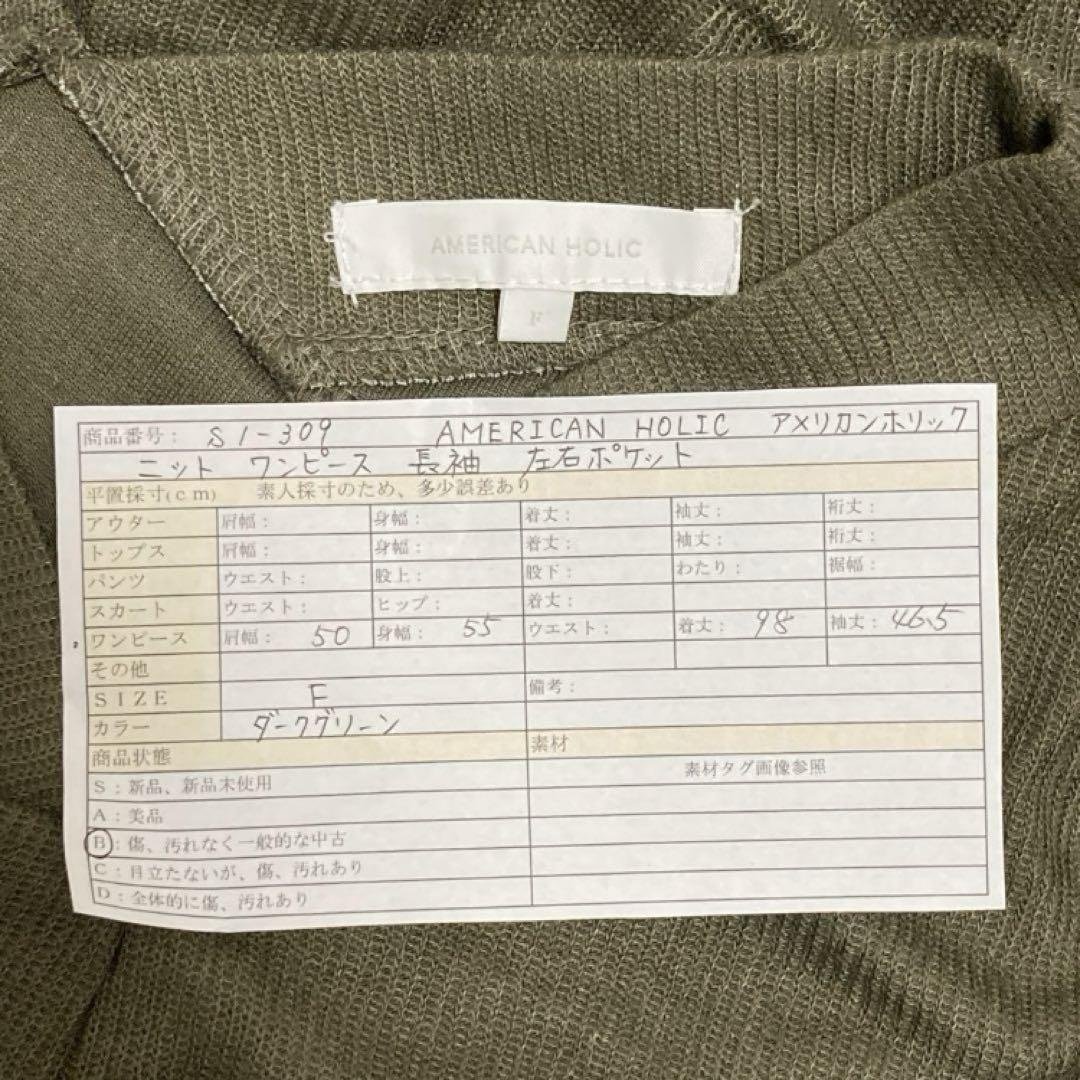 AMERICAN HOLIC
F
商品番号： S1-309 AMERICAN HOLIC アメリカンホリック
ニット ワンピース 長袖 左右ポケット
平置採寸(cm) 素人採寸のため、多少誤差あり
アウター 肩幅： 身幅： 着丈： 袖丈： 裄丈：
トップス 肩幅： 身幅： 着丈： 袖丈： 裄丈：
パンツ ウエスト： 股上： 股下： わたり： 裾幅：
スカート ウエスト： ヒップ： 着丈：
ワンピース 肩幅： 50 身幅： 55 ウエスト： 着丈： 98 袖丈： 46.5
その他
SIZE F 備考：
カラー ダークグリーン
商品状態 素材
S：新品、新品未使用 素材タグ画像参照
A：美品
B：傷、汚れなく一般的な中古
C：目立たないが、傷、汚れあり
D：全体的に傷、汚れあり